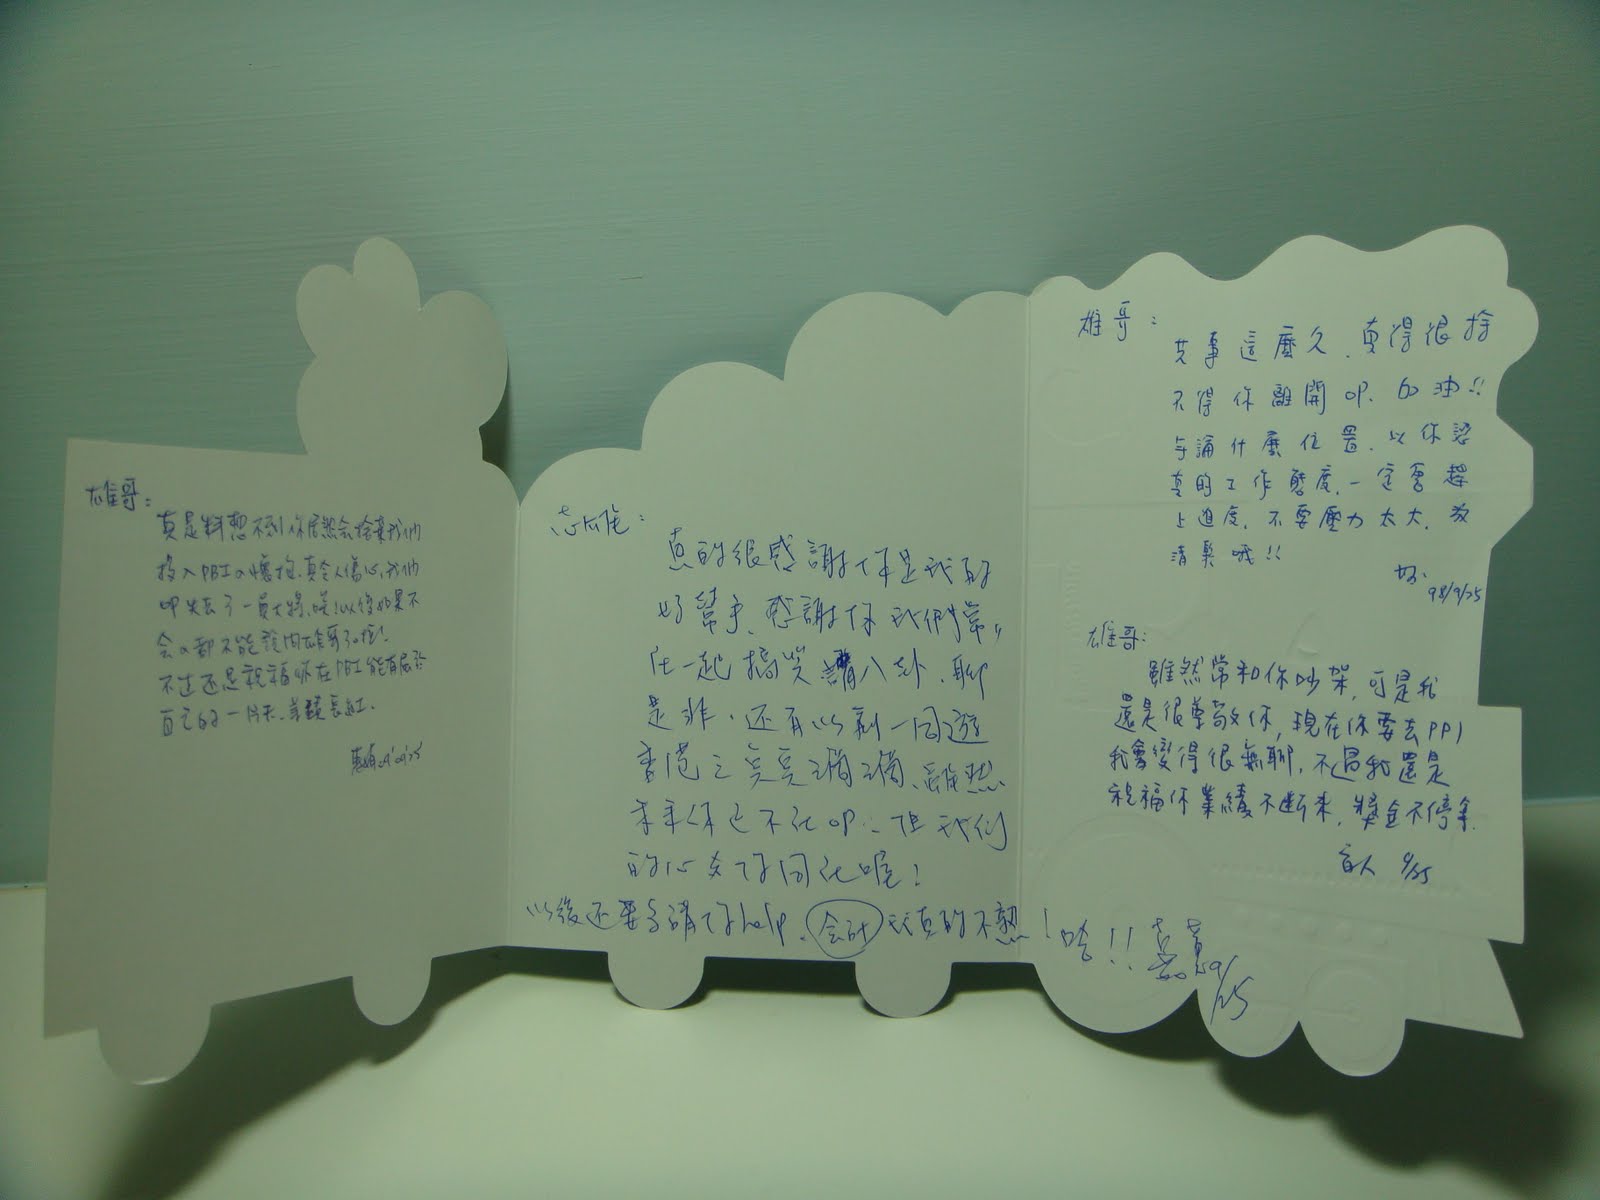 雄哥：
真是料想不到你居然会捨棄我們
投入PBI的懷抱，真令人傷心，我們
OP失去了一員大將，唉！以後如果不
会的都不能詢問雄哥了
不过还是祝福你在PBI能有屬於
自己的一片天，業績長紅．
志雄：
真的很感謝你是我的
好幫手，感謝你我們常
在一起搞笑講八卦、聊
是非．还有以前一同遊
香港之 雖然
未來你已不在OP，但我們
的心 同在喔！
以後还要多請 help，会計我真的不熟！哈！！嘉慧 9/25
雄哥：
共事這麼久，真得很捨
不得你離開OP，加油!!
論什麼位置，以你認
真的工作態度，一定會趕
上進度，不要壓力太大，放
清鬆哦!!
98/9/25
雄哥：
雖然常和你吵架，可是我
還是很尊敬你，現在你要去PPI
我會變得很無聊，不過我還是
祝福你業績不斷來，獎金不停拿．
9/25